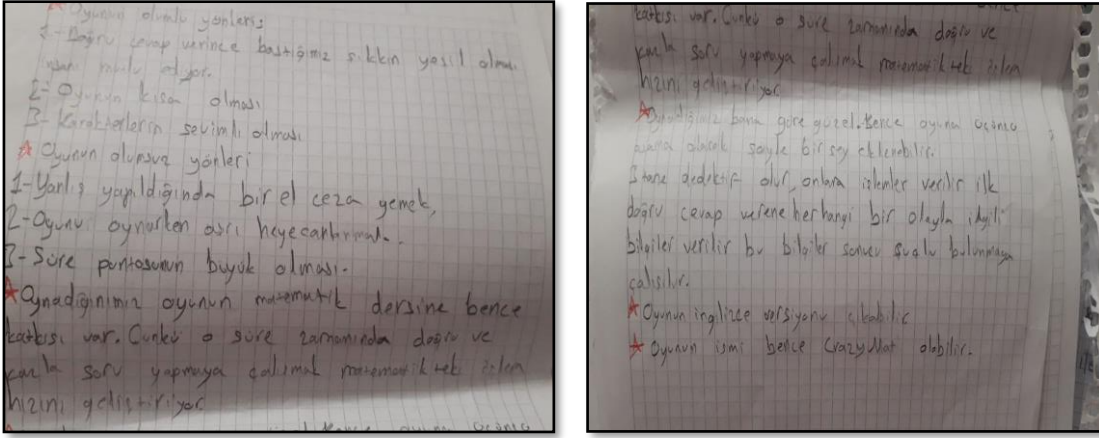 ★ Oyunun olumlu yönleri;
1-Doğru cevap verince bastığımız şıkkın yeşil olması
insanı mutlu ediyor.
2- Oyunun kısa olması
3- Karakterlerin sevimli olması
★ Oyunun olumsuz yönleri
1-Yanlış yapıldığında bir el ceza yemek,
2-Oyunu oynarken aşırı heyecanlanmak.
3-Süre puntosunun büyük olması.
★Oynadığınımız oyunun matematik dersine bence
katkısı var. Çünkü o süre zamanında doğru ve
soru yapmaya çalışmak matematikteki işlem
hızını geliştiriyor.
katkısı var. Çünkü o süre zamanında doğru ve
soru yapmaya çalışmak matematikteki işlem
hızını geliştiriyor
★Oynadığımız bana göre güzel. Bence oyuna üçüncü
olarak şöyle bir şey eklenebilir.
5 tane dedektif olur, onlara işlemler verilir ilk
doğru cevap verene herhangi bir olayla ilgili
bilgiler verilir bu bilgiler sonucu suçlu bulunmaya
çalışılır.
★Oyunun ingilizce versiyonu çıkabilir
★ Oyunun ismi bence Crazy Mat olabilir.